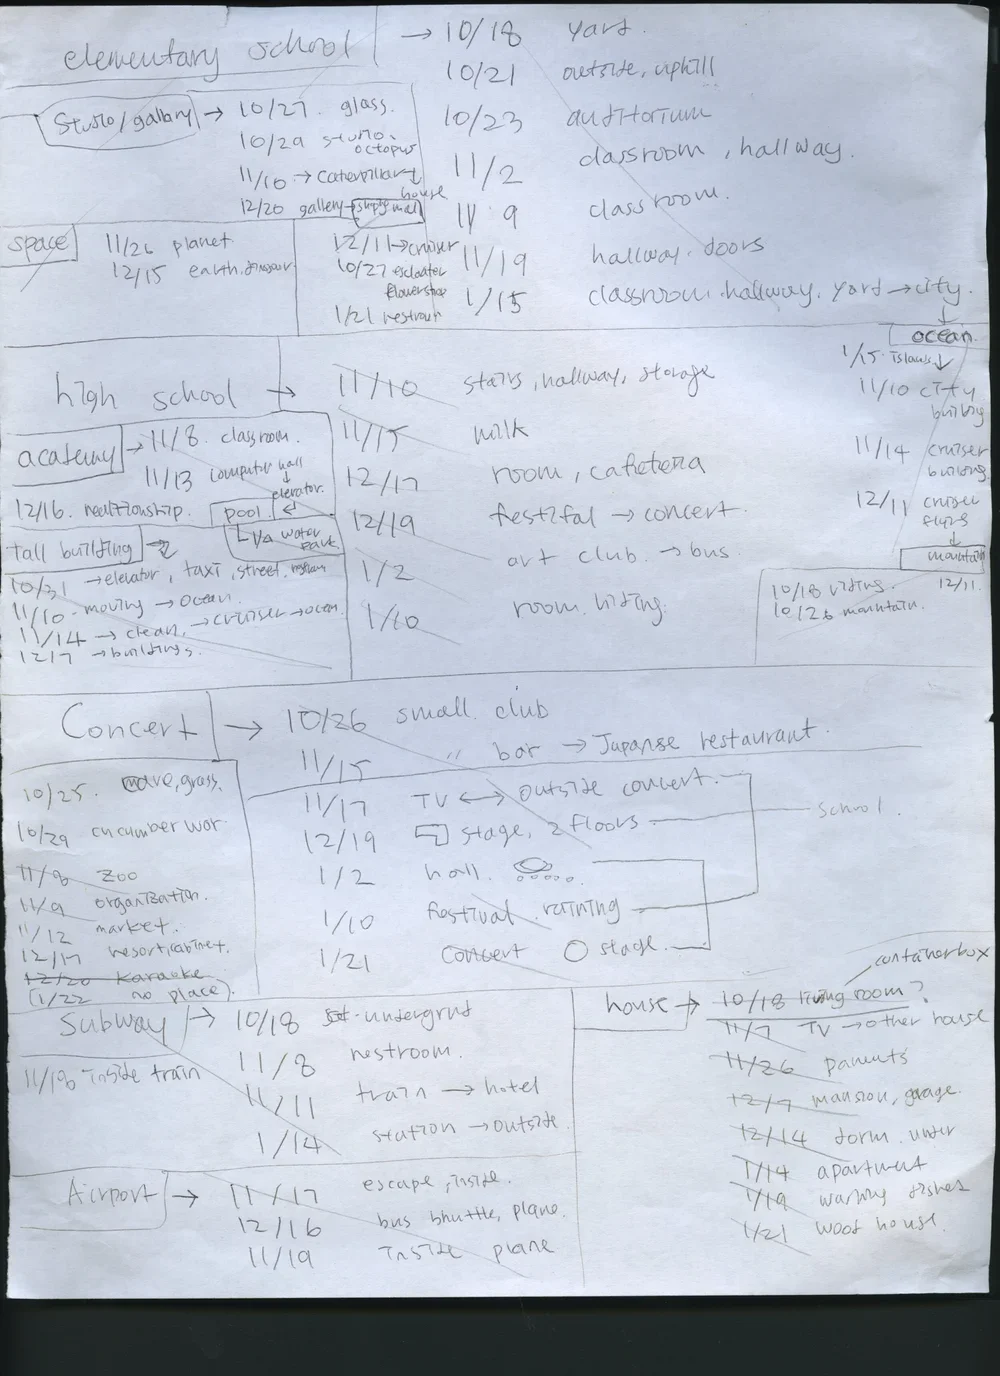 elementary school → 10/18 yard.
10/21 outside, uphill
10/23 auditorium
11/2 classroom, hallway.
11/9 classroom.
11/19 hallway. doors
1/15 classroom. hallway. yard → city.
studio/gallery → 10/27. glass.
10/29 studio. octopus
11/10 → caterpillar ↓ house
12/20 gallery →
12/11 → cruiser
10/27
flowershop
1/21
space 11/26 planet
12/15 earth.
ocean.
1/15. islands ↓
11/10 city building
11/14 cruiser building
12/11 cruiser
↓
mountain
12/11
10/18 riding.
10/26 mountain.
high school → 11/10 stairs, hallway, storage
11/15 milk
12/17 room, cafeteria
12/19 festifal → concert.
1/2 art club. → bus.
1/10 room. hiding.
academy → 11/8. classroom.
11/13 computer hall
↓
elevator.
12/16. pool ←
water park
tall building →
10/31 → elevator, taxi, street,
11/10 - moving → ocean.
11/14 → clean, → cruiser → ocean.
12/7 → buildings.
Concert → 10/26 small club
11/15 〃 bar → Japanse restaurant.
11/17 TV ↔ outside concert.
12/19 stage, 2 floors school.
1/2 hall.
1/10 festival. raining
1/21 Concert ○ stage.
10/25. grass.
10/29 cucumber
11/8 zoo
11/9 organization.
11/12 market.
12/17 resort, cabinet.
12/20 karaoke
(1/22 no place).
subway → 10/18
11/8 restroom.
11/11 train → hotel
1/14 station → outside.
11/18 inside train
containerbox
house → 10/18 living room?
11/7 TV → other house
11/26 parents
12/7 mansion, garage.
12/14 dorm.
1/14 apartment
1/19 washing dishes
1/21 wood house.
Airport → 11/17 escape, inside.
12/16 bus bhuttle, plane.
11/19 inside plane